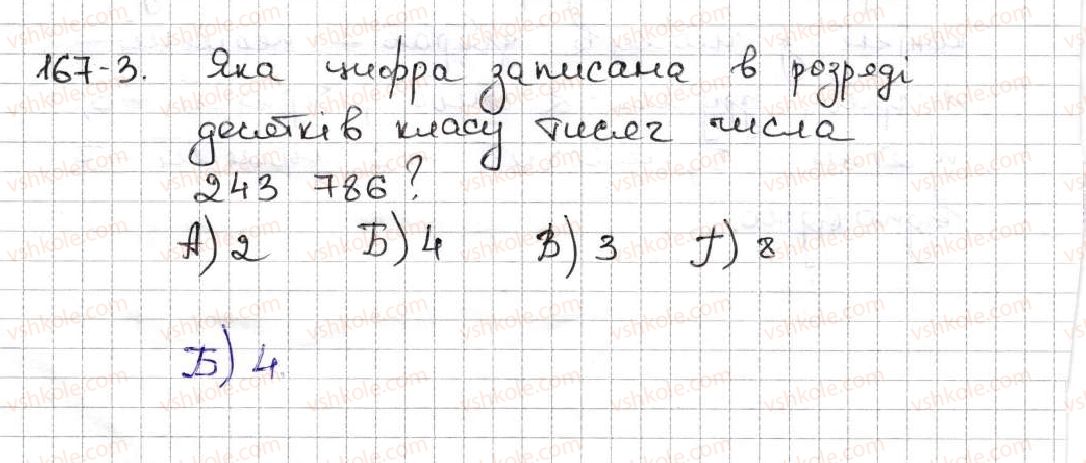 167-3. Яка цифра записана в розряді
десятків класу тисяч числа
243 786?
А) 2 Б) 4 В) 3 Г) 8
Б) 4.